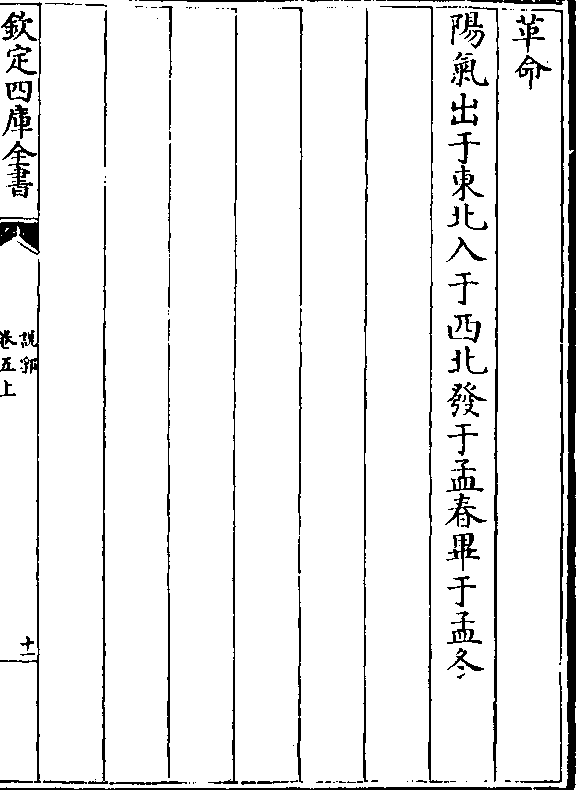 革命
陽氣出于東北入于西北發于孟春畢于孟冬
欽定四庫全書
說郛
卷五上
十一